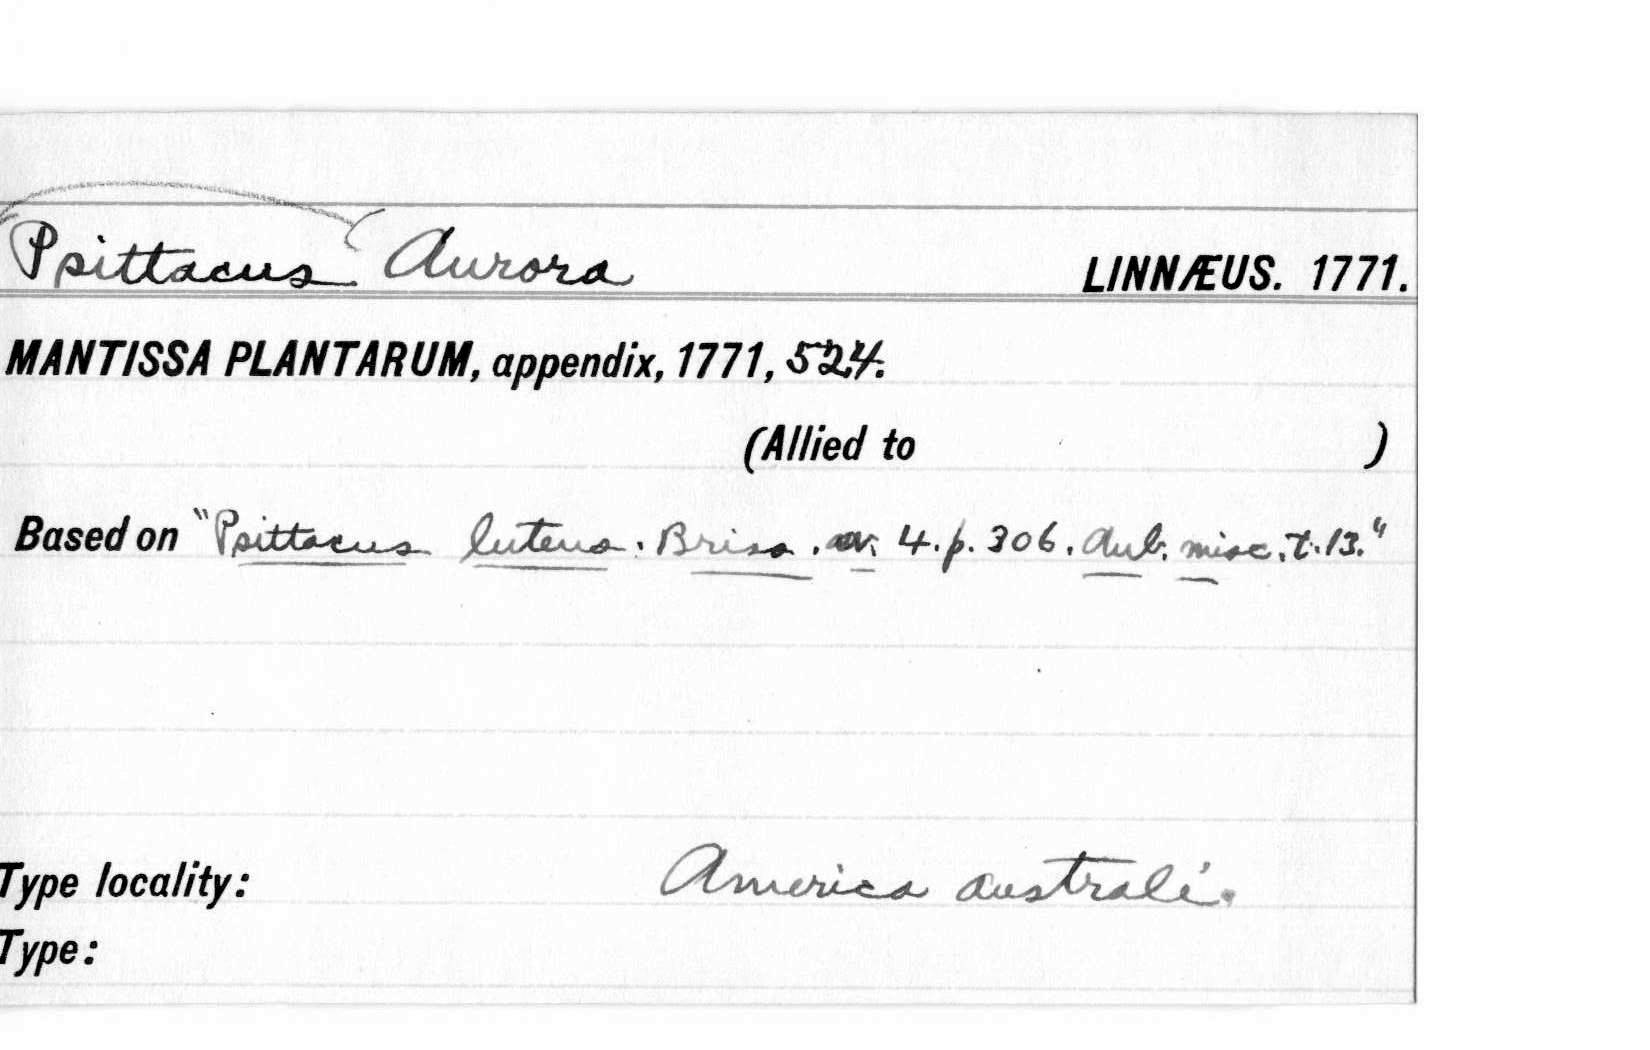 Psittacus Aurora LINNÆUS. 1771.
MANTISSA PLANTARUM, appendix, 1771, 524.
(Allied to )
Based on "Psittacus luteus. Briss. av. 4. p. 306. Aub. misc. t. 13."
Type locality: America australi.
Type: